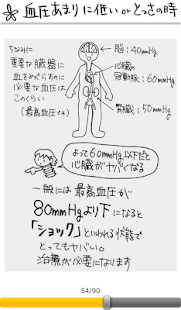 ※ 血圧あまりに低い or とっさの時
ちなみに
重要な臓器に
血をめぐらすのに
必要な血圧は
このくらい
(最高血圧で)
脳:40mmHg
心臓の
冠動脈:60mmHg
腎臓:50mmHg
よって60mmHg以下だと
心臓がヤバくなる
一般には最高血圧が
80mmHgより下になると
「ショック」といわれる状態で
とってもヤバい。
治療が必要になります
54/90